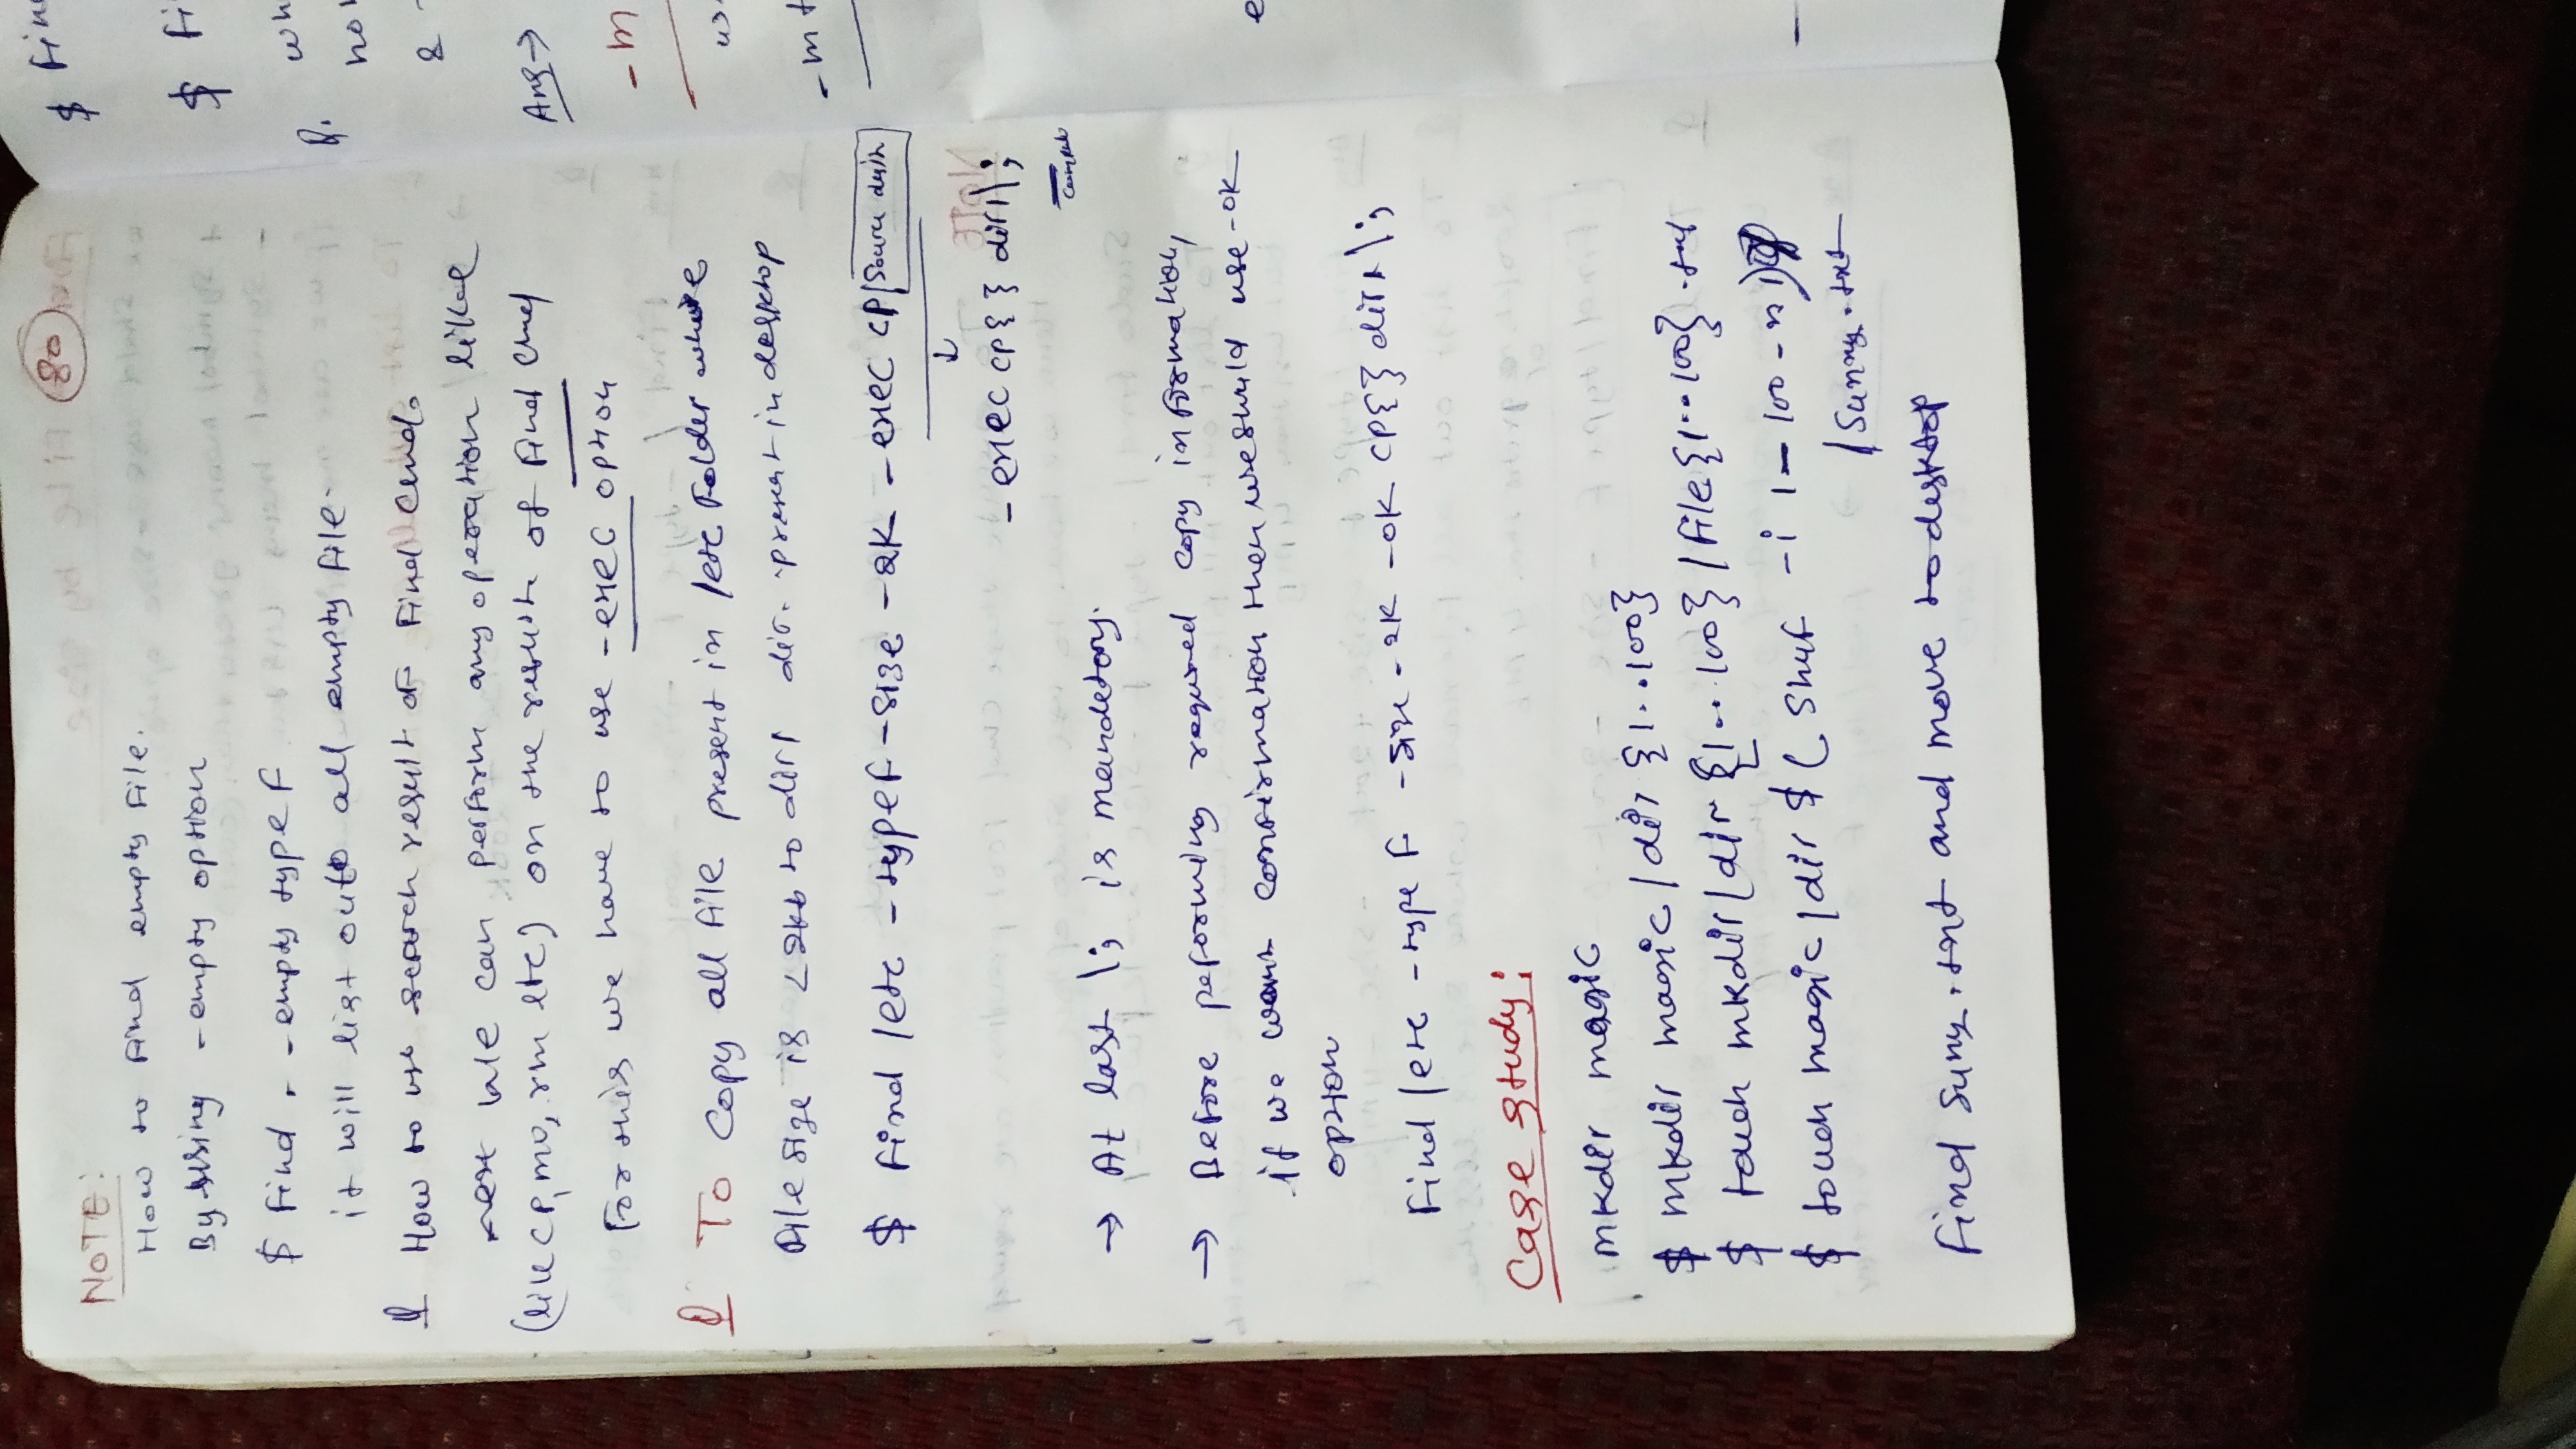 80
NOTE:
How to find empty file.
By using -empty option
$ find . -empty type f
it will list out all empty file.
Q How to use search result of find cmd.
we can perform any operation like
(like cp, mv, rm etc) on the result of find cmd
For this we have to use -exec option
Q To copy all file present in /etc Folder whose
file size is <2kb to dir1 dir. present in desktop
$ find /etc -type f -size -2k -exec cp
↓
-exec cp {} dir1 \;
→ At last \; is mandetory.
→ Before peforming required copy information,
if we want confirmation then we shuld use -ok
option
Find /etc -type f -size -2k -ok cp {} dir1 \;
Case study:
mkdir magic
$ mkdir magic/dir{1..100}
$ touch mkdir/dir{1..100}/file{1..100}.txt
$ touch magic/dir$(shuf -i 1-100 -n 1)
/sunny.txt
find suny.txt and move to desktop
$ fin
$ fi
Q. wh
&
Ans →
-m
-mt